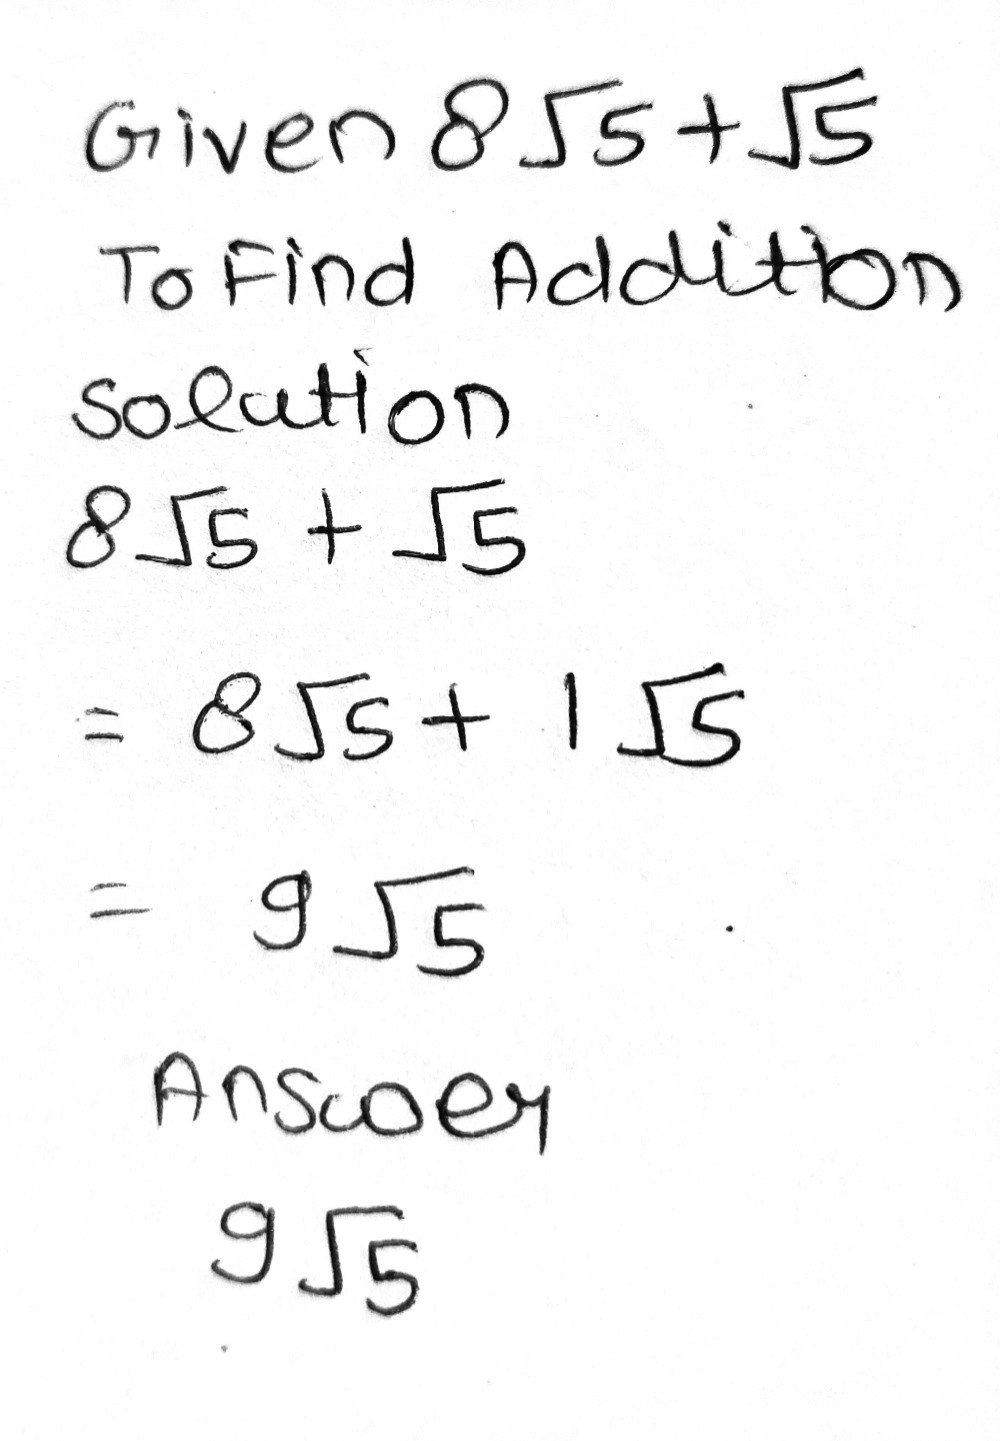 Given 8√5+√5
To Find Addition
solution
8√5 + √5
= 8√5 + 1√5
= 9√5
Answer
9√5